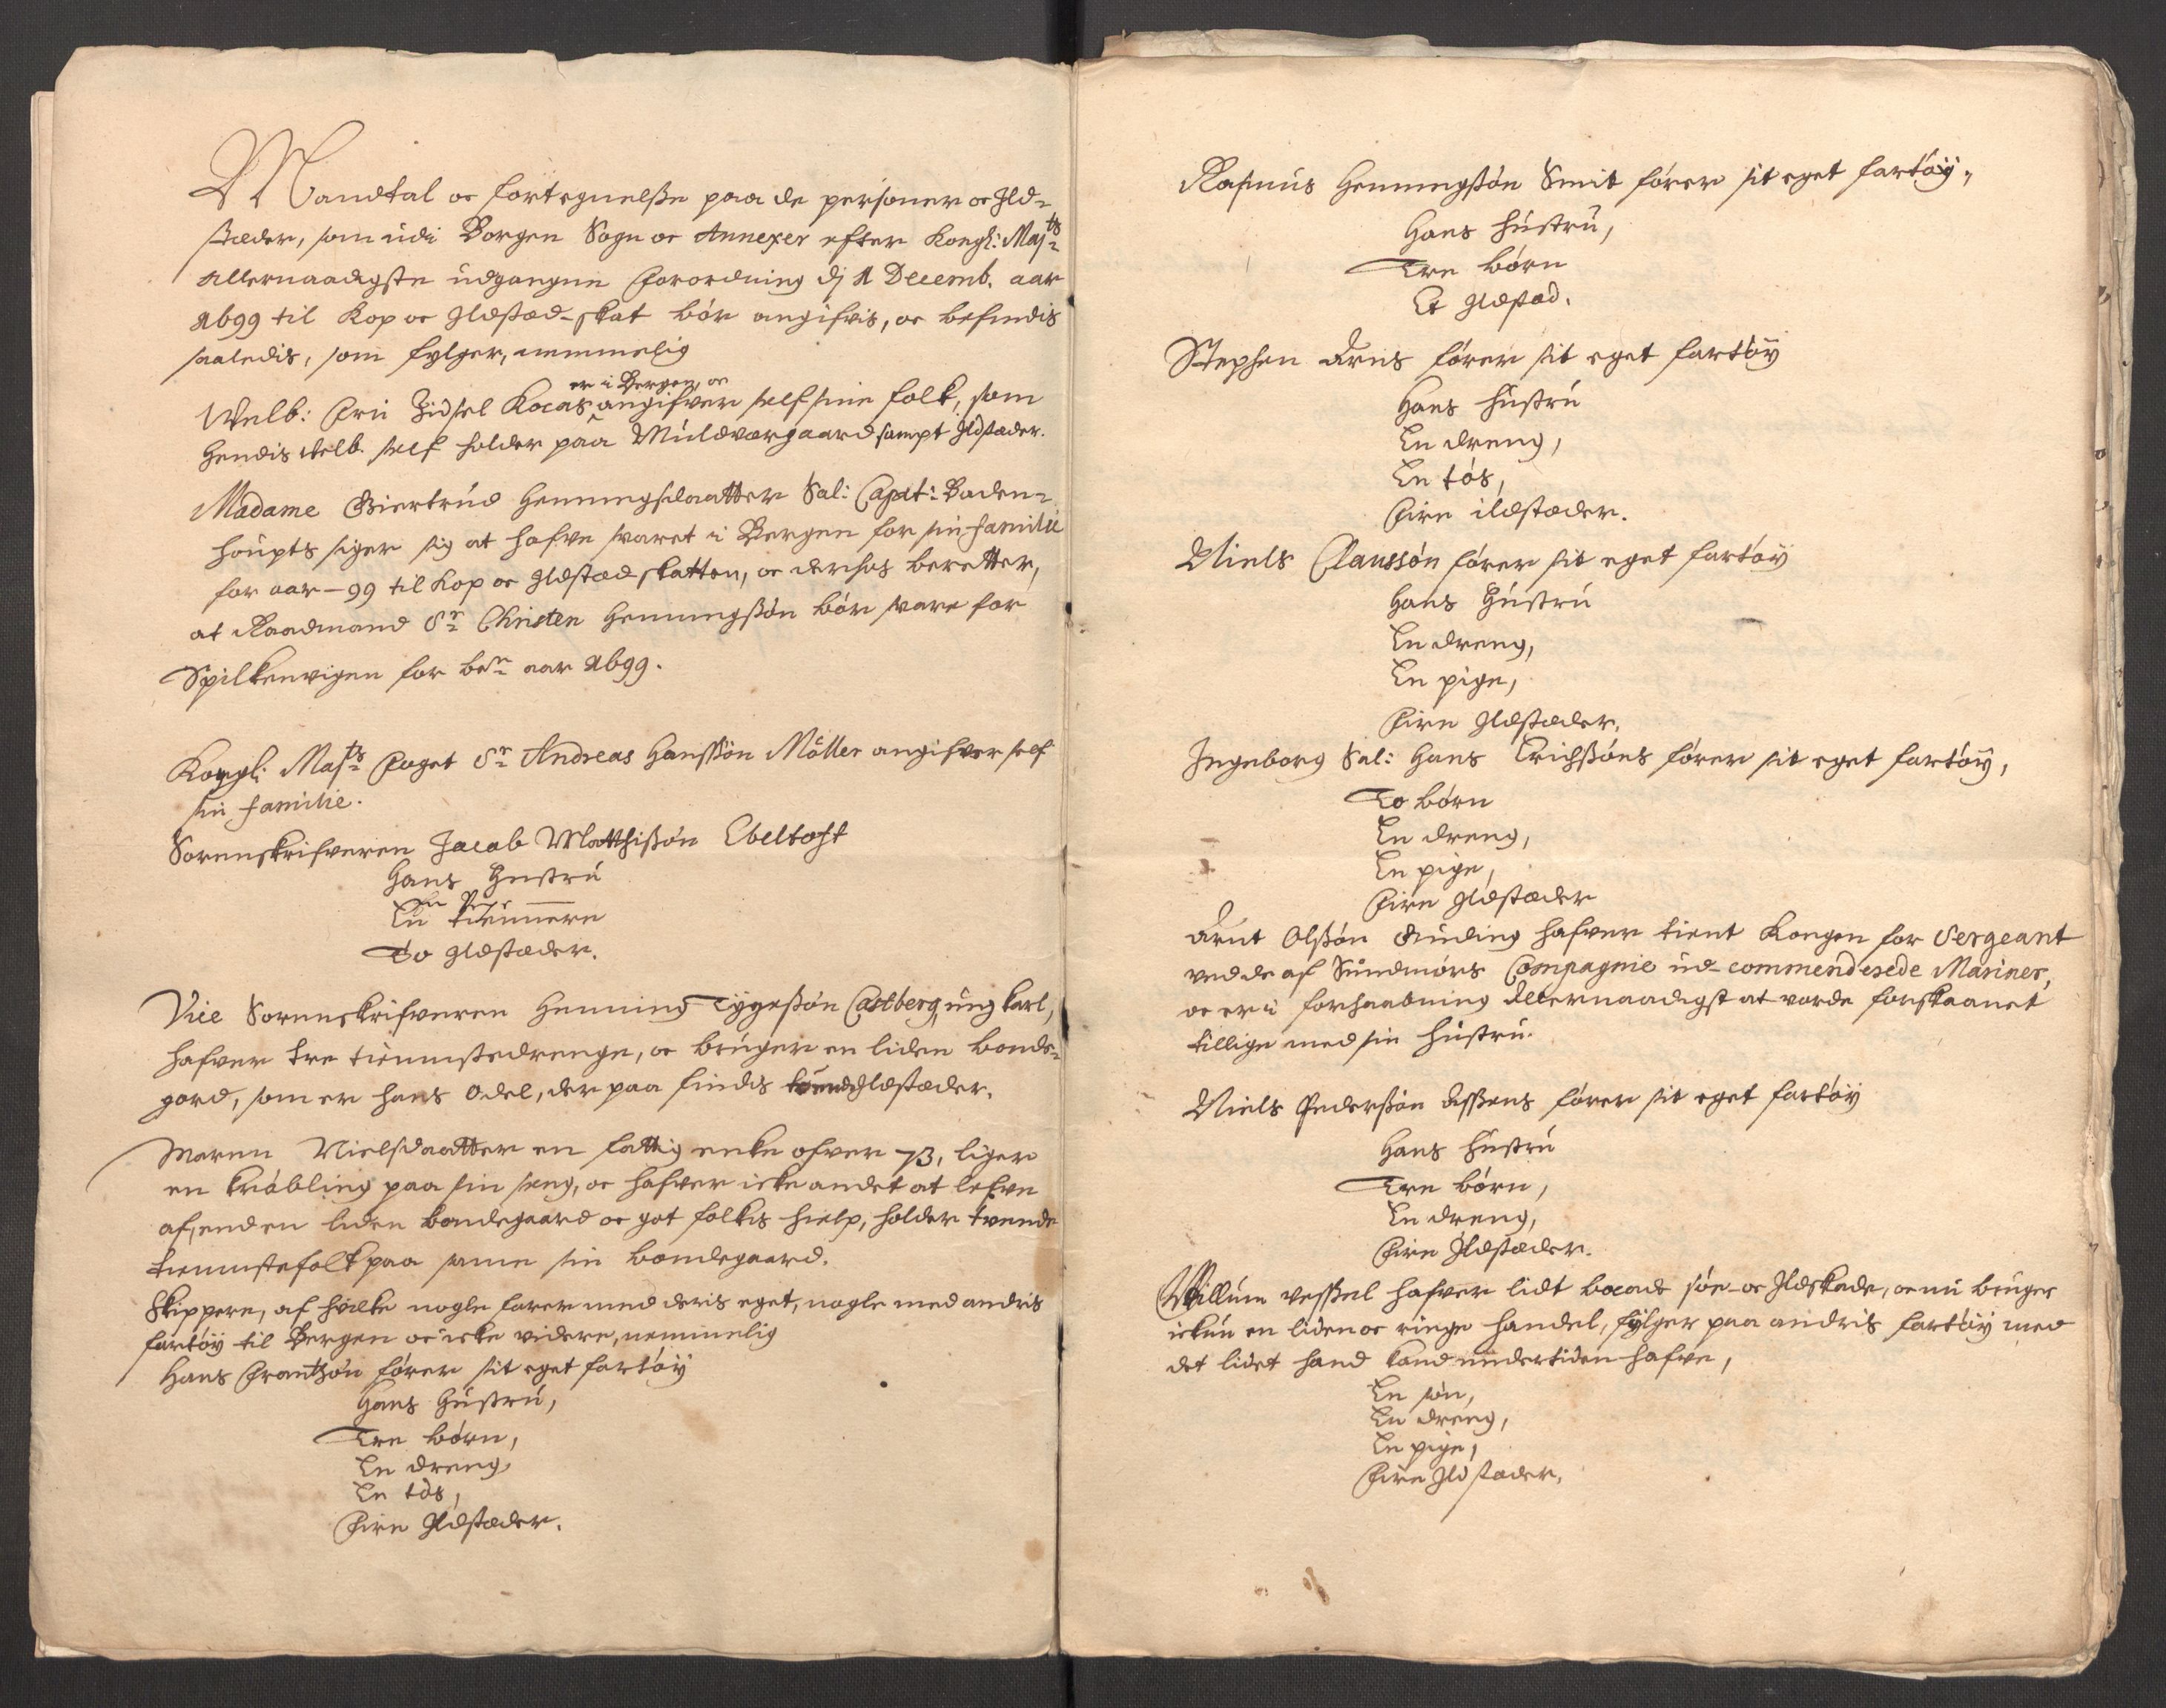 Mandtal oc fortegnelsse paa de personer oc Ild-
stæder, som udi Borgen Sogn oc Annexer efter Kongl: Maj:ts
allernaadigste udgangne forordning dj 1 Decemb. aar
1699 til Kop oc Ildstæd-skat bør angifvis, oc befindis
saaledis, som følger, nemmelig
er i Bergen, oc
Welb: Fru Zidsel Kocas angifver self sine folk, som
hendis Welb. self holder paa Muldværgaard sampt Ildstæder.
Madame Giertrud Henningsdaatter Sal: Capt: Baden-
houpts siger sig at hafve svaret i Bergen for sin familie
for aar -99 til Kop oc Ildstæd skatten, oc derhos beretter,
at Raadmand Sr Christen Henningssøn bør svare for
Spilkevigen for ben aar 1699.
Kongl: Majts Foget Sr Andreas Hanssøn Møller angifver self
sin familie.
Sorenskrifveren Jacob Matthissøn Ebeltoft
Hans Hustru
En tienere
To Ildstæder.
Vice Sorenskrifveren Henning Tygessøn Castberg, ung karl,
hafver tre tienistedrenge, oc bruger en liden bonde-
gord, som er hans Odel, der paa findis tvende Ildstæder.
Maren Nielsdaatter en fattig enke ofver 73, liger
en krøbling paa sin seng, oc hafver icke andet at lefve
af, end en liden bondegaard oc got folkis hielp, holder tvende
tienistefolk paa samme sin bondegaard.
Skippere, af hvilke nogle farer med deris eget, nogle med andris
fartøy til Bergen oc icke videre, nemmelig
Hans Frantzøn fører sit eget fartøy
Hans Hustru,
Tre børn,
En dreng,
En tøs,
Fire Ildstæder.
Rasmus Henningssøn Smit fører sit eget fartøy,
Hans hustru,
Tre børn
Et Ildstæd.
Stephen Arns fører sit eget fartøy
Hans hustru
En dreng,
En tøs,
Fire ildstæder.
Niels Claussøn fører sit eget fartøy
Hans Hustru
En dreng,
En pige,
Fire Ildstæder.
Ingeborg Sal: Hans Erichssøns fører sit eget fartøy,
To børn
En dreng,
En pige,
Fire Ildstæder
Arnt Olssøn Gunding hafver tient Kongen for Sergeant
ved de af Sundmørs Compagnie ud-commenderede Mariner,
oc er i forhaabning allernaadigst at vorde forskaanet
tillige med sin hustru.
Niels Pederssøn Assens fører sit eget fartøy
Hans hustru
Tre børn,
En dreng,
Fire Ildstæder.
Willum Wessel hafver lidt baade søe- oc Ildskade, oc nu bruger
ickun en liden oc ringe handel, følger paa andris fartøy med
det lidet hand kand undertiden hafve,
En søn,
En dreng,
En pige,
Fire Ildstæder.